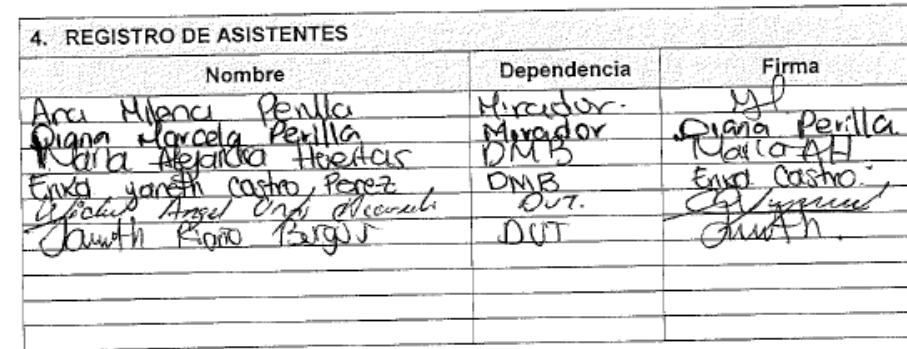 4. REGISTRO DE ASISTENTES
Nombre Dependencia Firma
Ana Milena Perilla Mirador.
Diana Marcela Perilla Mirador Diana Perilla.
Maria Alejandra Huertas DMB Maria AH
Erika yaneth castro Perez DMB Erika Castro.
Angel DUT.
Riaño DUT